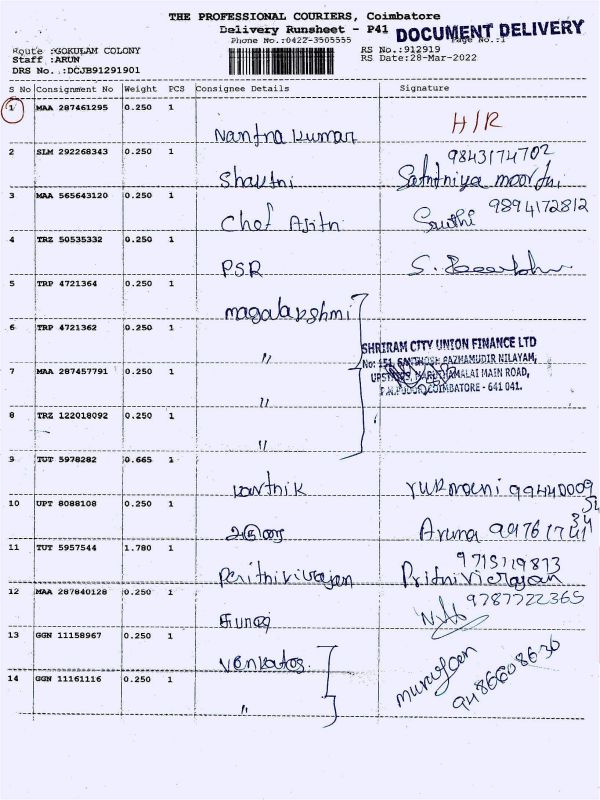 THE PROFESSIONAL COURIERS, Coimbatore
Delivery Runsheet - P41
DOCUMENT DELIVERY
Phone No.:0422-3505555
Page No.:1
Route :GOKULAM COLONY
RS No.:912919
Staff :ARUN
RS Date:28-Mar-2022
DRS No.:DCJB91291901
S No Consignment No Weight PCS Consignee Details Signature
1 MAA 287461295 0.250 1
Nantha Kumar H/R
2 SLM 292268343 0.250 1 9843174702
Shakthi moorthi
3 MAA 565643120 0.250 1 9894172812
Chef Ajith
4 TRZ 50535332 0.250 1
PSR
5 TRP 4721364 0.250 1
magalakshmi
6 TRP 4721362 0.250 1
"
SHRIRAM CITY UNION FINANCE LTD
No: 151, SANTHOSH PAZHAMUDIR NILAYAM,
UPSTAIRS, MARUTHAMALAI MAIN ROAD,
P.N.PUDUR, COIMBATORE - 641 041.
7 MAA 287457791 0.250 1
"
8 TRZ 122018092 0.250 1
"
9 TUT 5978282 0.665 1
Karthik rukmani 99440009
54
10 UPT 8088108 0.250 1 34
Aruna
11 TUT 5957544 1.780 1 9715719813
Prithivirajan
12 MAA 287840128 0.250 1 9787722365
13 GGN 11158967 0.250 1
Venkates
14 GGN 11161116 0.250 1 murugan 9486608636
"